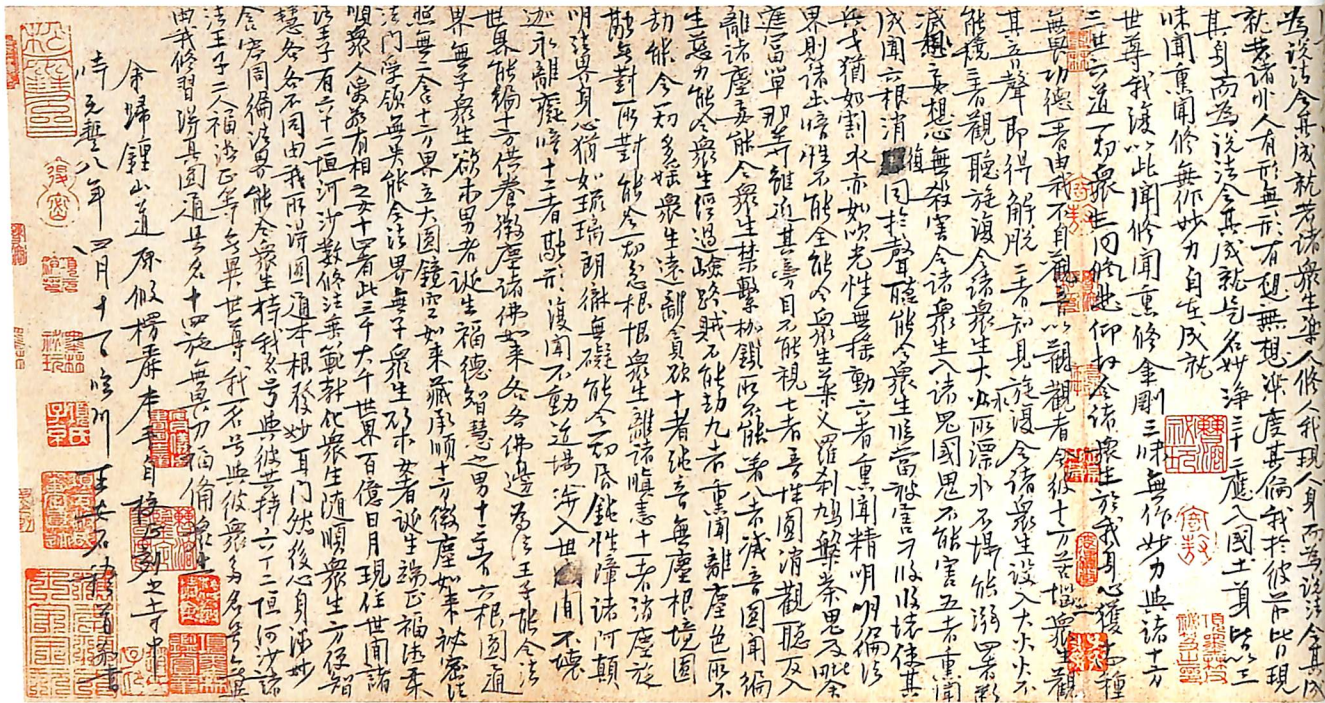 為說法令其成就若諸眾生樂人修人我現人身而為說法令其成
就若諸非人有形無形有想無想樂度其倫我於彼前皆現
其身而為說法令其成就是名妙淨三十二應入國土身皆以三
昧聞熏聞修無作妙力自在成就
世尊我復以此聞修聞熏修金剛三昧無作妙力與諸十方
三世六道一切眾生同悲仰故令諸眾生於我身心獲十四種
無畏功德一者由我不自觀音以觀觀者令彼十方苦惱眾生觀
其音聲即得解脫二者知見旋復令諸眾生設入大火火不
能燒三者觀聽旋復令諸眾生大水所漂水不能溺四者斷
滅妄想心無殺害令諸眾生入諸鬼國鬼不能害五者熏聞
成聞六根消復同於聲聽能令眾生臨當被害刀段段壞使其
兵戈猶如割水亦如吹光性無搖動六者熏聞精明明徧法
界則諸幽暗性不能全能令眾生藥叉羅剎鳩槃茶鬼及毗舍
遮富單那等雖近其旁目不能視七者音性圓消觀聽反入
離諸塵妄能令眾生禁繫枷鎖所不能著八者滅音圓聞徧
生慈力能令眾生經過嶮路賊不能劫九者熏聞離塵色所不
劫能令一切多婬眾生遠離貪欲十者純音無塵根境圓
融無對所對能令一切忿恨眾生離諸瞋恚十一者消塵旋
明法界身心猶如琉璃朗徹無礙能令一切昏鈍性障諸阿顛
迦永離癡暗十二者融形復聞不動道場涉入世間不壞
世界能徧十方供養微塵諸佛如來各各佛邊為法王子能令法
界無子眾生欲求男者誕生福德智慧之男十三者六根圓通
照無二含十方界立大圓鏡空如來藏承順十方微塵如來祕密法
法門受領無失能令法界無子眾生欲求女者誕生端正福德柔
順眾人愛敬有相之女十四者此三千大千世界百億日月現住世間諸
法王子有六十二恒河沙數修法垂範教化眾生隨順眾生方便智
慧各各不同由我所得圓通本根發妙耳門然後心身微妙
含容周徧法界能令眾生持我名號與彼共持六十二恒河沙諸
法王子二人福德正等無異世尊我一名号與彼眾多名号無異
由我修習得真圓通是名十四施無畏力福備眾生
余歸鍾山道原假楞嚴本手自校正刻之寺中
時元豐八年四月十一日臨川王安石稽首敬書